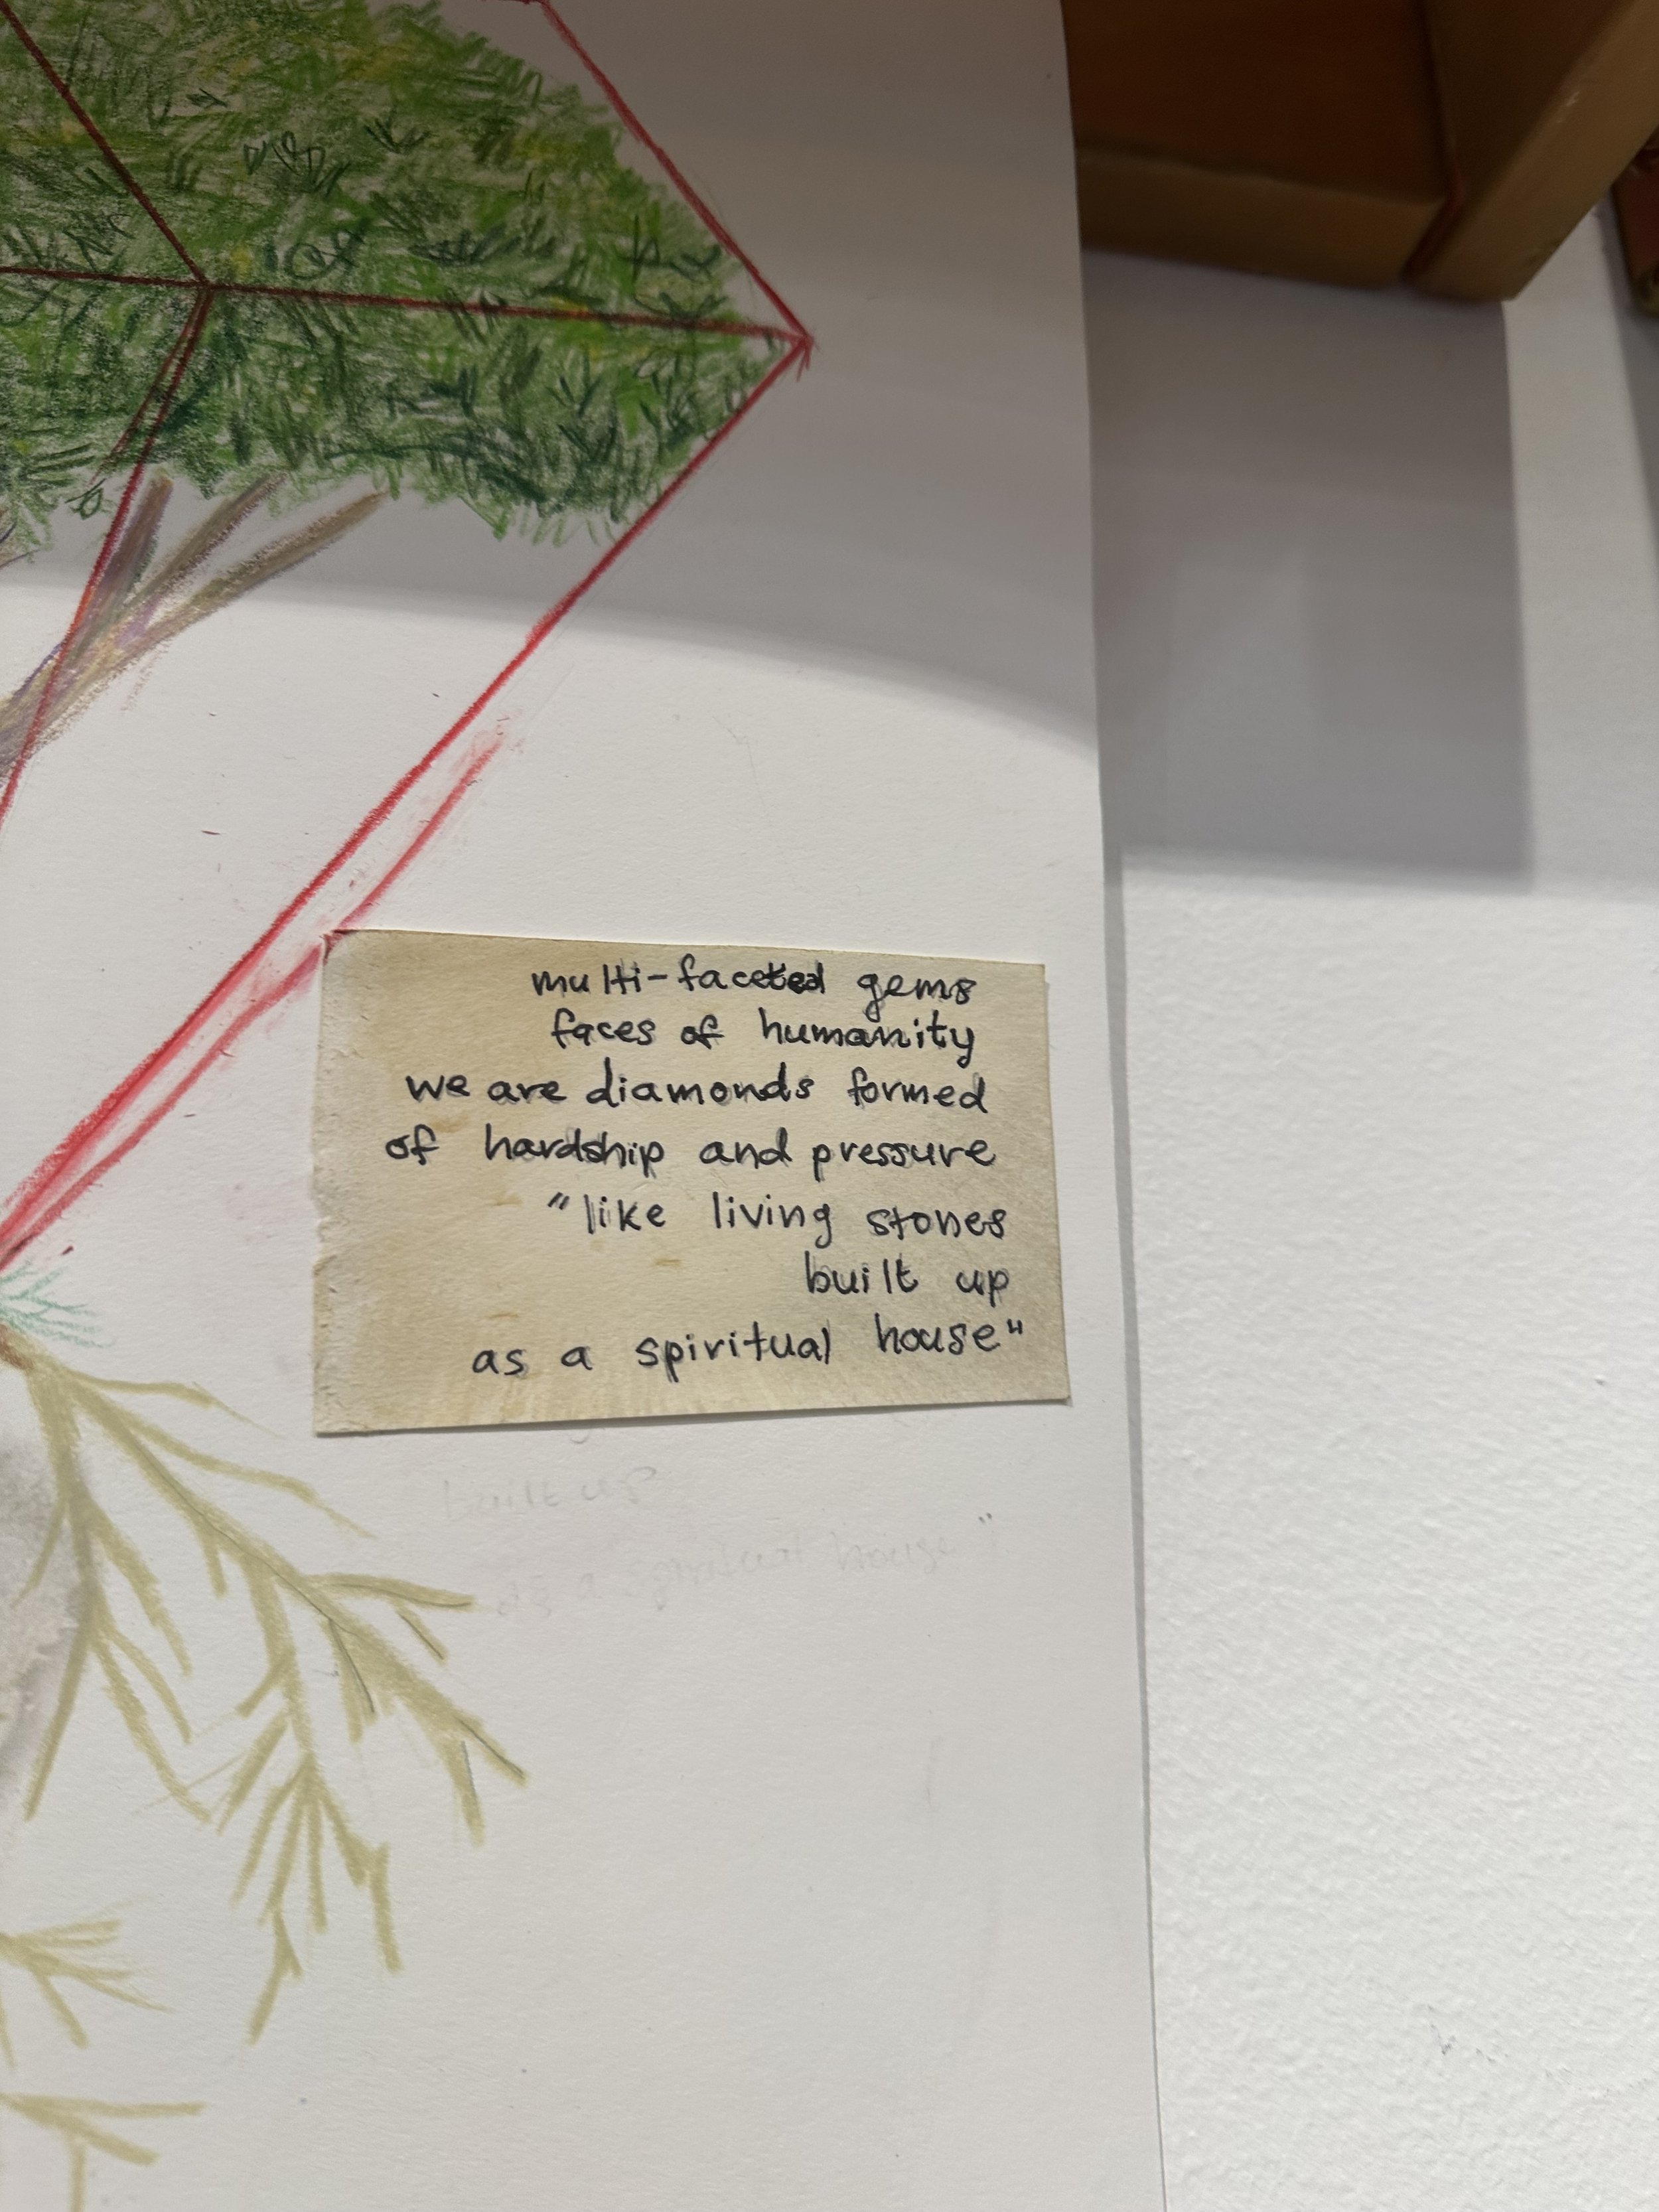 multi-faceted gems
faces of humanity
we are diamonds formed
of hardship and pressure
"like living stones
built up
as a spiritual house"
built up
as a spiritual house"